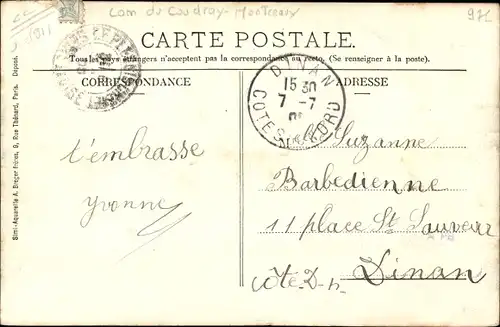 Com du Coudray-Montceaux
97c
1911
CARTE POSTALE.
Tous les pays étrangers n'acceptent pas la correspondance au recto. (Se renseigner à la poste).
CORRESPONDANCE
ADRESSE
DINAN
15 30
7 - 7
COTES DU NORD
t'embrasse
Yvonne
Suzanne
Barbedienne
11 place St Sauveur
Dinan
Côte-D-N-
Simi-Aquarelle A. Breger Frères, 9, Rue Thénard, Paris. Déposé.